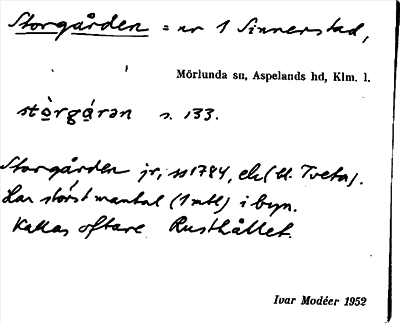 Storgården = nr 1 Sinnerstad,
Mörlunda sn, Aspelands hd, Klm. l.
stò̀rgá̀rən s. 133.
Storgården jr, ss 1784, ek (bl. Tveta).
Har störst mantal (1 mtl) i byn.
Kallas oftare Rusthållet.
Ivar Modéer 1952